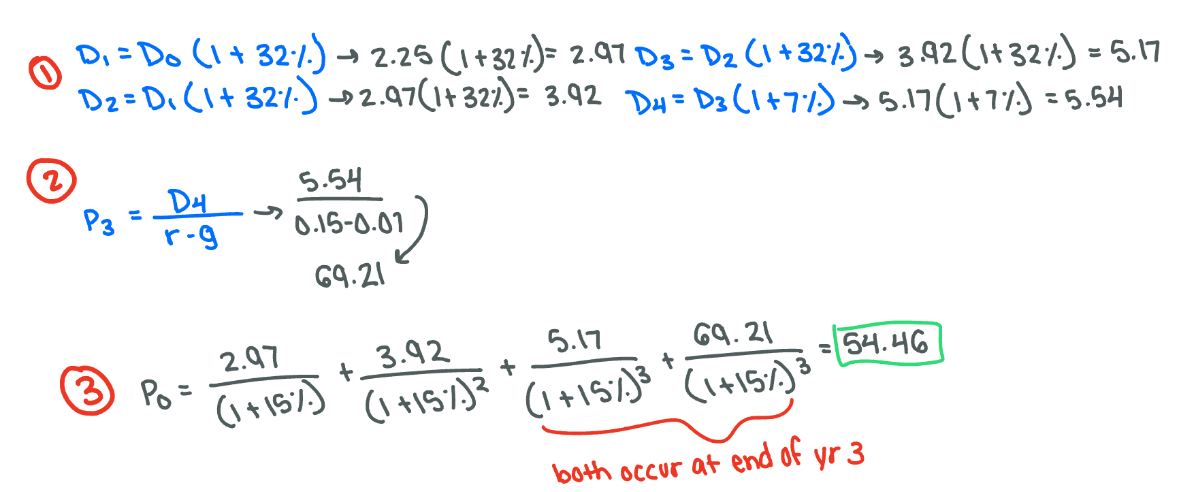 ① D₁ = D₀ (1 + 32%) → 2.25 (1+32%) = 2.97 D₃ = D₂ (1+32%) → 3.92 (1+32%) = 5.17
D₂ = D₁ (1 + 32%) → 2.97(1+32%) = 3.92 D₄ = D₃ (1+7%) → 5.17(1+7%) = 5.54
② P₃ = D₄ / r-g → 5.54 / 0.15-0.07
69.21
③ P₀ = 2.97 / (1+15%) + 3.92 / (1+15%)² + 5.17 / (1+15%)³ + 69.21 / (1+15%)³ = 54.46
both occur at end of yr 3